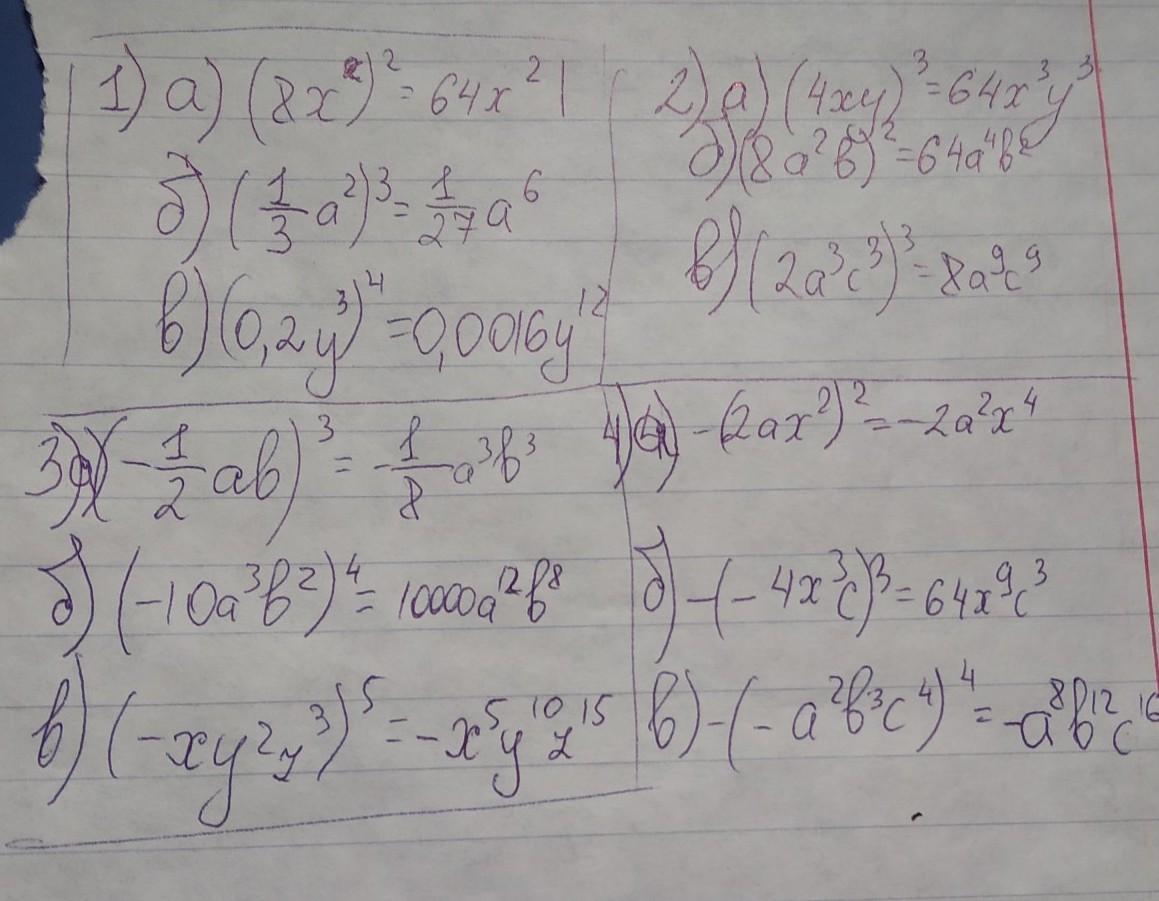 1) а) (8x)² = 64x²
б) (1/3 a²)³ = 1/27 a⁶
в) (0,2y³)⁴ = 0,0016y¹²
2) а) (4xy)³ = 64x³y³
б) (8a²b)² = 64a⁴b²
в) (2a³c³)³ = 8a⁹c⁹
3) а) (-1/2 ab)³ = -1/8 a³b³
б) (-10a³b²)⁴ = 10000a¹²b⁸
в) (-xy²z³)⁵ = -x⁵y¹⁰z¹⁵
4) а) -(2ax²)² = -2a²x⁴
б) -(-4x³c)³ = 64x⁹c³
в) -(-a²b³c⁴)⁴ = -a⁸b¹²c¹⁶